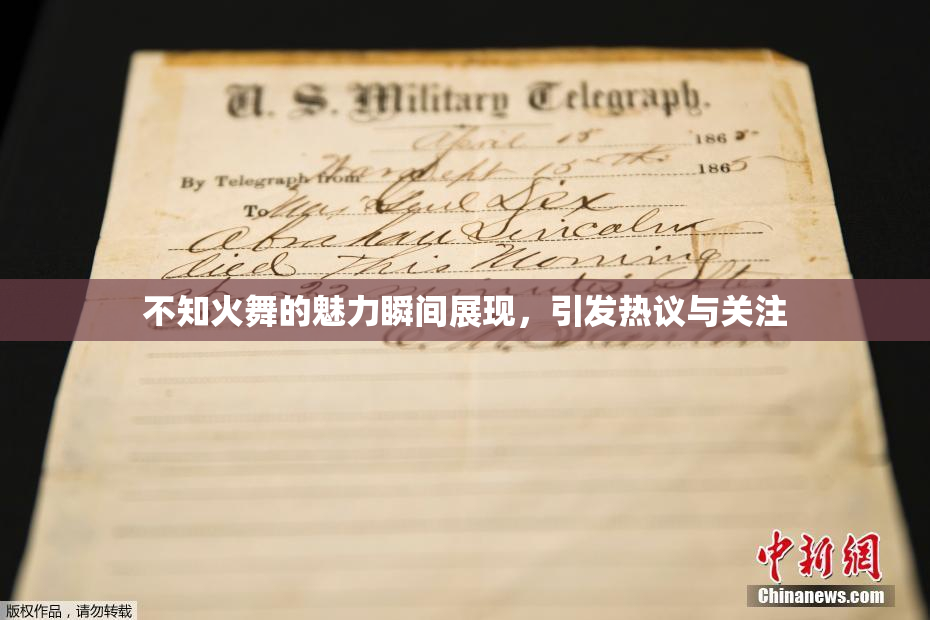 U. S. Military Telegraph.
April 15 1865
By Telegraph from War Dept 15th 1865
To Maj Genl Dix
Abraham Lincoln
died This Morning
at 22 minutes after
不知火舞的魅力瞬间展现，引发热议与关注
E. M. Stanton
中新网
Chinanews.com
版权作品，请勿转载